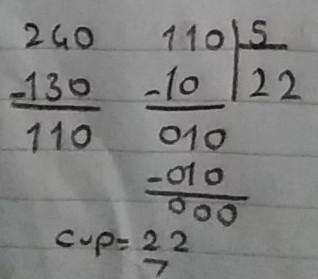 240 110 5
-130 -10 22
110 010
-010
000
cvp= 22